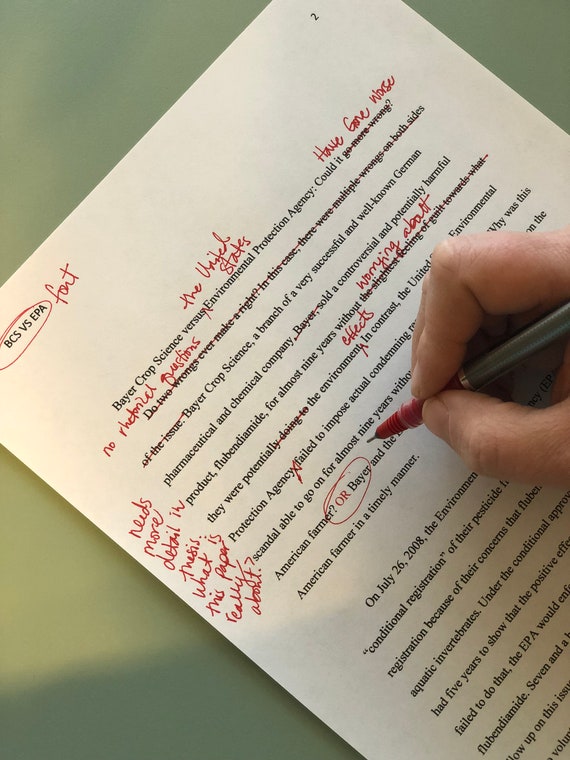 2
BCS VS EPA
font
Have Gone Worse
the United
States
Bayer Crop Science versus Environmental Protection Agency: Could it go more wrong?
Do two wrongs ever make a right? In this case, there were multiple wrongs on both sides
no rhetorical questions
of the issue. Bayer Crop Science, a branch of a very successful and well-known German
pharmaceutical and chemical company, Bayer, sold a controversial and potentially harmful
worrying about
product, flubendiamide, for almost nine years without the slightest feeling of guilt towards what
effects
they were potentially doing to the environment. In contrast, the United Environmental
Protection Agency failed to impose actual condemning Why was this
scandal able to go on for almost nine years on the
American farmer? OR Bayer and
American farmer in a timely manner.
needs
more
detail in
Thesis
what is
this paper
really
about?
On July 26, 2008, the (EP
“conditional registration” of their pesticide
registration because of their concerns that
aquatic invertebrates. Under the conditional
had five years to show that the positive
failed to do that, the EPA would
flubendiamide. Seven and a
up on this